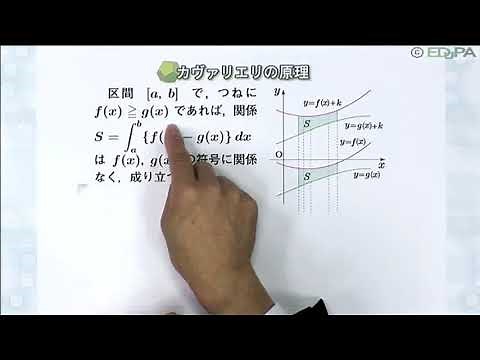 カヴァリエリの原理
© EDUPA
区間 [a, b] で，つねに
f(x) ≧ g(x) であれば，関係
S = ∫_a^b {f( − g(x)} dx
は f(x), g(x の符号に関係
なく，成り立つ
y
y=f(x)+k
S
y=g(x)+k
y=f(x)
O
x
S
y=g(x)